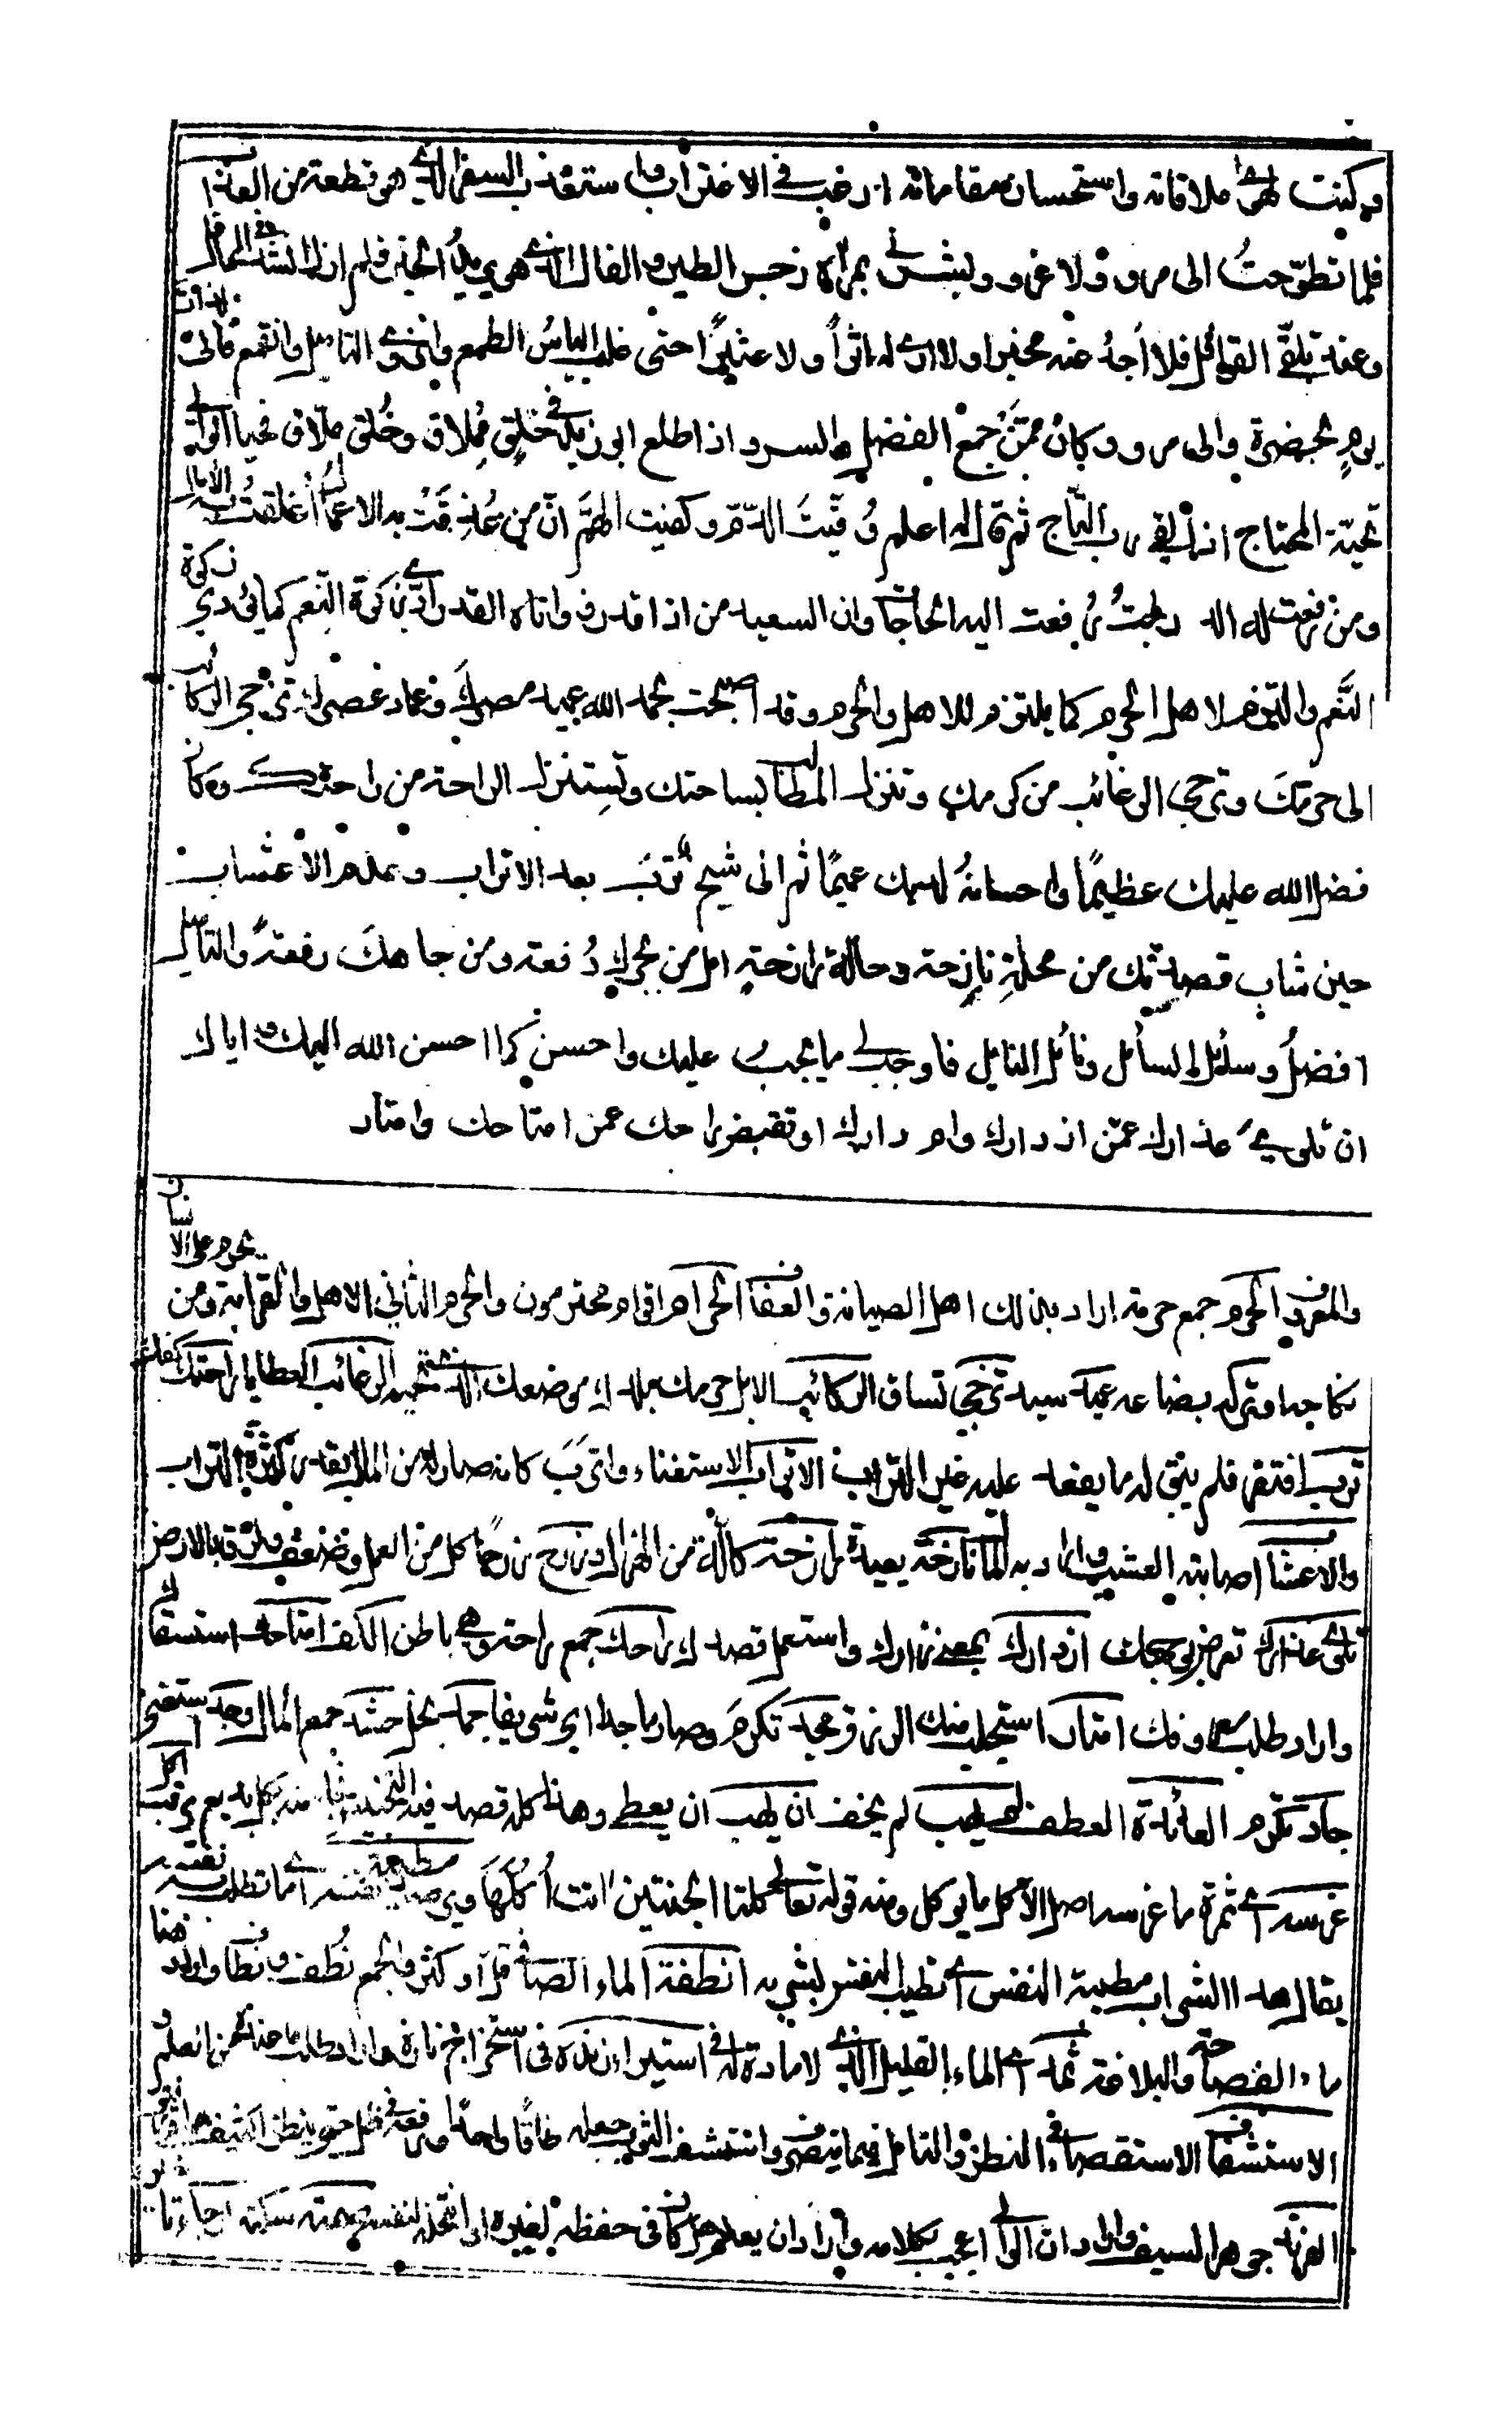 وكنت لهوى ملاقاته واستحسان مقاماته ارغب في الاغتراب واستعذب السفر الذي هو قطعة من العذاب
فلما تطوّحتُ الى مرو ولا غرو وبشرني بمراه زجر الطير والفال الذي هو بريد الخير فلم ازل انشده في المحافل
وعند تلقي القوافل فلا اجدُ عنه مخبرا ولا ارى له اثراً ولا عثيراً حتى غلب الياسُ الطمع وانزوى التاميل وانقمع فاني لذات
يومٍ بحضرة والي مرو وكان ممّن جمع الفضل والسرو اذ اطلع ابو زيد في خَلَقٍ مِملاق وخُلُق ملّاق فحيا الوالي
تحيّة المحتاج اذا لقي رب التاج ثم قال له اعلم وُقيتَ الذمّ وكفيت الهمّ انّ من عُذِقَتْ به الاعمال اُعلقتْ به الآمال
ومن رفعت له الدرجتُ رفعت اليه الحاجات وان السعيد من اذا قدر وواتاه القدر ادّى زكوة النّعم كما يؤدي زكوة
النَّعم والتزم لاهل الحرم كما يلتزم للاهل والحرم وقد اصبحت بحمد الله عميد مصرك وعماد عصرك تزجى الركائب
الى حرمك وترجى الرغائب من كرمك وتنزل المطالب بساحتك وتستنزل الراحة من راحتك وكان
فضل الله عليك عظيماً واحسانهُ لديك عميماً ثم اني شيخ تَرِبَ بعد الاتراب وعدم الاعشاب
حين شاب قصدتك من محلةٍ نازحة وحالة رازحة امل من بحرك دُفعة ومن جاهك رفعةً والتاميل
افضلُ وسائل السائل ونائل النايل فاوجب لي ما يجب عليك واحسن كما احسن الله اليك واياك
ان تلوي عذارك عمّن ازدارك وام دارك او تقبض راحك عمن امتاحك وامتار
يحرم على الانسان
والمعروف الحرم جمع حرمة اراد بذالك اهل الصيانة والعفاف الحرام اقوام محترمون والحرم الثاني الاهل والقرابة ومن
نكاحها عميد سيد تزجى تساق الركائب الابل حرمك بلدك موضعك الرغائب العطايا راحتك كفك
ترب افتقر فلم يبق له ما يقعد عليه غير التراب الاتراب الاستغناء واترب كانه صار له من المال بقدر كثرة التراب
والاعشاب اصابته العشب واراد به المال نازحة بعيدة رازحة كالّة من الهزال ورزح رزحاً كل من العمل وضعف ولزق بالارض
تلوي عذارك تعرض بوجهك ازدارك بمعنى زارك واستعمل قصدك راحك جمع راحة وهي باطن الكف امتاحك استسقاك
واراد طلب معروفك امتار استجلب منك الرزق مجد تكرم وصار ماجدا اي شريفا جمد بخل حشد جمع المال وجد يستغنى
جاد تكرم العائدة العطف لم يهب لم يخف ان يهب ان يعطي وهذا كله قصد فيه التجنيس
غرسه اي ثمرة ما غرسه اصل الاكل ما يوكل ومنه قوله تعالى كلتا الجنتين اتت اُكُلَهَا
يقال هذا الشراب مطيبة النفس اي تطيب النفس بشربه نطفة الماء الصافي قل او كثر والجمع نُطَف ونطاف واراد هنا
ماء الفصاحة والبلاغة ثمد اي الماء القليل الذي لا مادة له استيراء زنده في استخراج ناره واراد طلب ما عنده من العلم
الاستشفاف الاستقصاء في النظر والتامل فيما تبصر واستشف الثوب جعله طاقا واحدا ورفعه في ظل حتى ينظر اكثيف هو
الفرند جوهر السيف واراد ان الوالي اعجب بكلامه واراد ان يعلم هل كان في حفظه لغيره او انتحله لنفسه